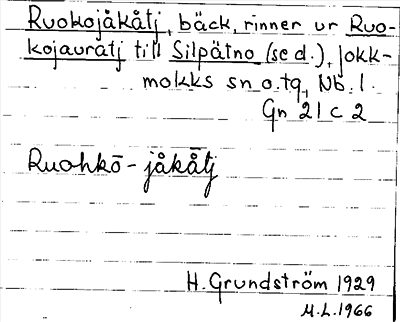 Ruokojåkåtj, bäck, rinner ur Ruo-
kojauratj till Silpätno (se d.), Jokk-
mokks sn o. tg, Nb. l.
Gn 21 c 2
Ruohkō-jåkåtj
H. Grundström 1929
M.L. 1966